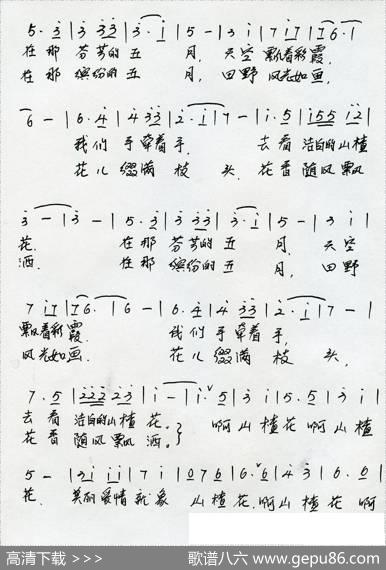 5·3|3 33|3·i|5-|3 i|7 i7|i76·|
在那 芬芳的 五 月, 天空 飘着彩霞,
在那 缤纷的 五 月, 田野 风光如画,
6-|6·4|4 33|2·i|7-|i·5|i55 i2|
我们 手牵着 手, 去看 洁白的山楂
花儿 缀满 枝 头, 花香 随风飘
3-|3-|5·3|3 33|3·i|5-|3 i|
花. 在那 芬芳的 五 月, 天空
洒. 在那 缤纷的 五 月, 田野
7 i7|i76·|6-|6·4|4 33|2·i|7-|
飘着彩霞 我们 手牵着 手,
风光如画. 花儿 缀满 枝 头,
7·5|222 23|i-|i·5|3·i|5·5|3 i|
去看 洁白的山楂 花。 啊山楂花啊山楂
花香 随风飘 洒。
5-|3i ii|7 i|076|6·6|43|6·6|
花. 美丽爱情就象 山楂花,啊山楂花 啊
高清下载 >>> 歌谱八六 www.gepu86.com